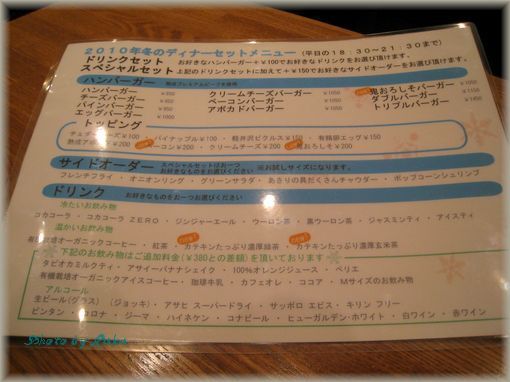 2010年冬のディナーセットメニュー (平日の18:30~21:30まで)
ドリンクセット お好きなハンバーガー+¥100でお好きなドリンクをお選び頂けます。
スペシャルセット 上記のドリンクセットに加えて+¥150でお好きなサイドオーダーをお選び頂けます。
ハンバーガー
ハンバーガー クリームチーズバーガー 鬼おろしそバーガー
チーズバーガー ベーコンバーガー ダブルバーガー
パインバーガー アボカドバーガー トリプルバーガー
エッグバーガー
トッピング
チェダーチーズ¥100 パイナップル¥100 軽井沢ピクルス¥150 有精卵エッグ¥150
¥200 ーコン¥200 クリームチーズ¥200 鬼おろしそ¥200
サイドオーダー スペシャルセットはお一つお好きなものをお選びください ※お試しサイズになります。
フレンチフライ ・ オニオンリング ・ グリーンサラダ ・ あさりの具だくさんチャウダー ・ ポップコーンシュリンプ
ドリンク お好きなものをお一つお選びください
冷たいお飲み物
コカコーラ ・ コカコーラZERO ・ ジンジャーエール ・ ウーロン茶 ・ 黒ウーロン茶 ・ ジャスミンティ ・ アイスティ
温かいお飲み物
有機栽培オーガニックコーヒー ・ 紅茶 ・ カテキンたっぷり濃厚緑茶 ・ カテキンたっぷり濃厚玄米茶
下記のお飲み物はご追加料金(¥380との差額)を頂いております
タピオカミルクティ ・ アサイーバナナシェイク ・ 100%オレンジジュース ・ ペリエ
有機栽培オーガニックアイスコーヒー ・ 珈琲牛乳 ・ カフェオレ ・ ココア ・ Mサイズのお飲み物
アルコール
生ビール(グラス) (ジョッキ) ・ アサヒ スーパードライ ・ サッポロ エビス ・ キリン フリー
ビンタン ・ コロナ ・ ジーマ ・ ハイネケン ・ コナビール ・ ヒューガルデン・ホワイト ・ 白ワイン ・ 赤ワイン